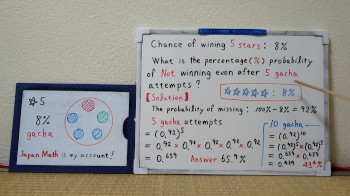 ☆5
8%
gacha
Japan Math is my account!
Chance of wining 5 stars : 8%
What is the percentage(%) probability
of Not winning even after 5 gacha
attempts ?
☆☆☆☆☆ : 8%
[Solution]
The probability of missing : 100% - 8% = 92%
5 gacha attempts
= (0.92)⁵
= 0.92 × 0.92 × 0.92 × 0.92 × 0.92
= 0.659
Answer 65.9%
10 gacha
= (0.92)¹⁰
= (0.92)⁵ × (0.92)⁵
= 0.659 × 0.659
= 0.434
43.4%